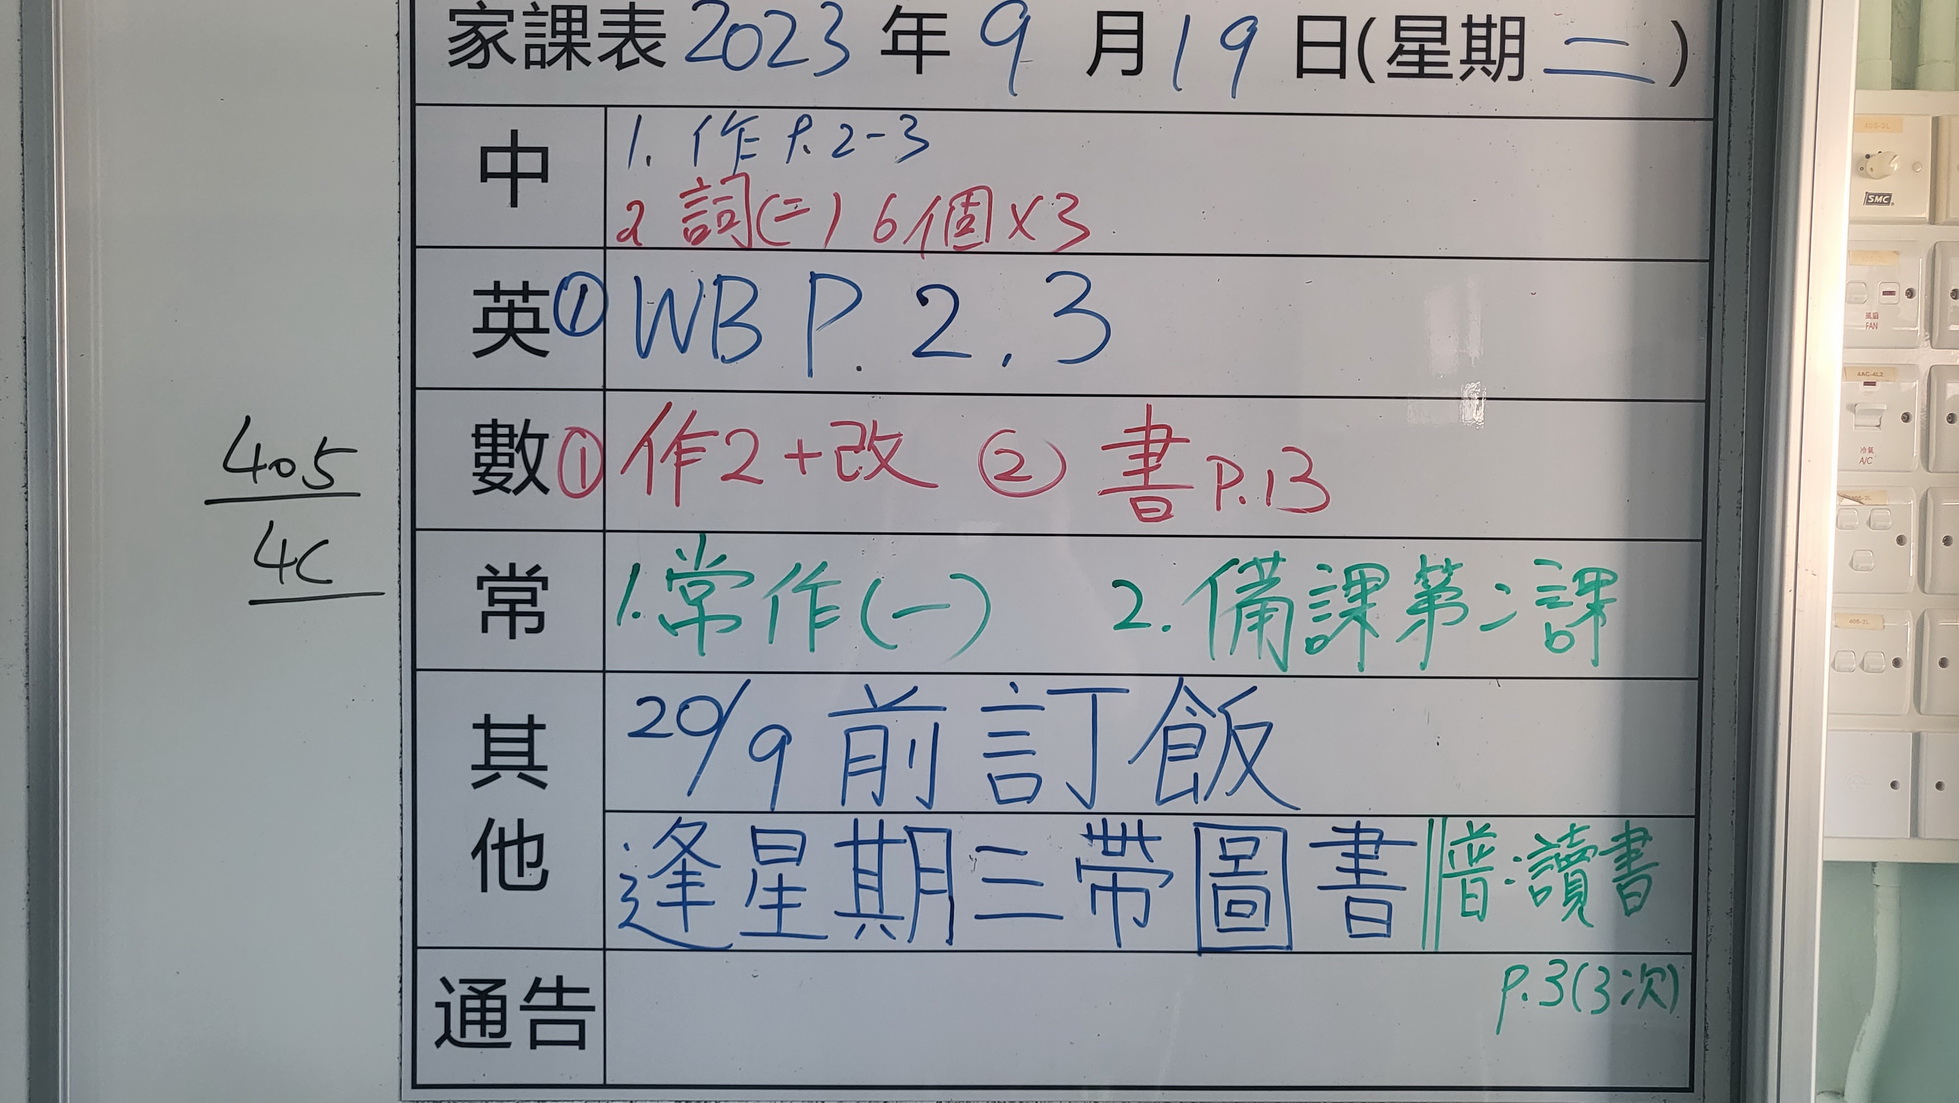 家課表 2023 年 9 月 19 日(星期 二)
中
1. 作 P.2-3
2 詞(二) 6個×3
英 ① WB P. 2 . 3
數 ① 作2+改 ② 書 P.13
常 1.常作(一) 2.備課第二課
其他
20/9 前訂飯
逢星期三帶圖書 普:讀書
P.3(3次)
通告
405
4C
SMC
風扇
FAN
4AC-4L2
冷氣
A/C